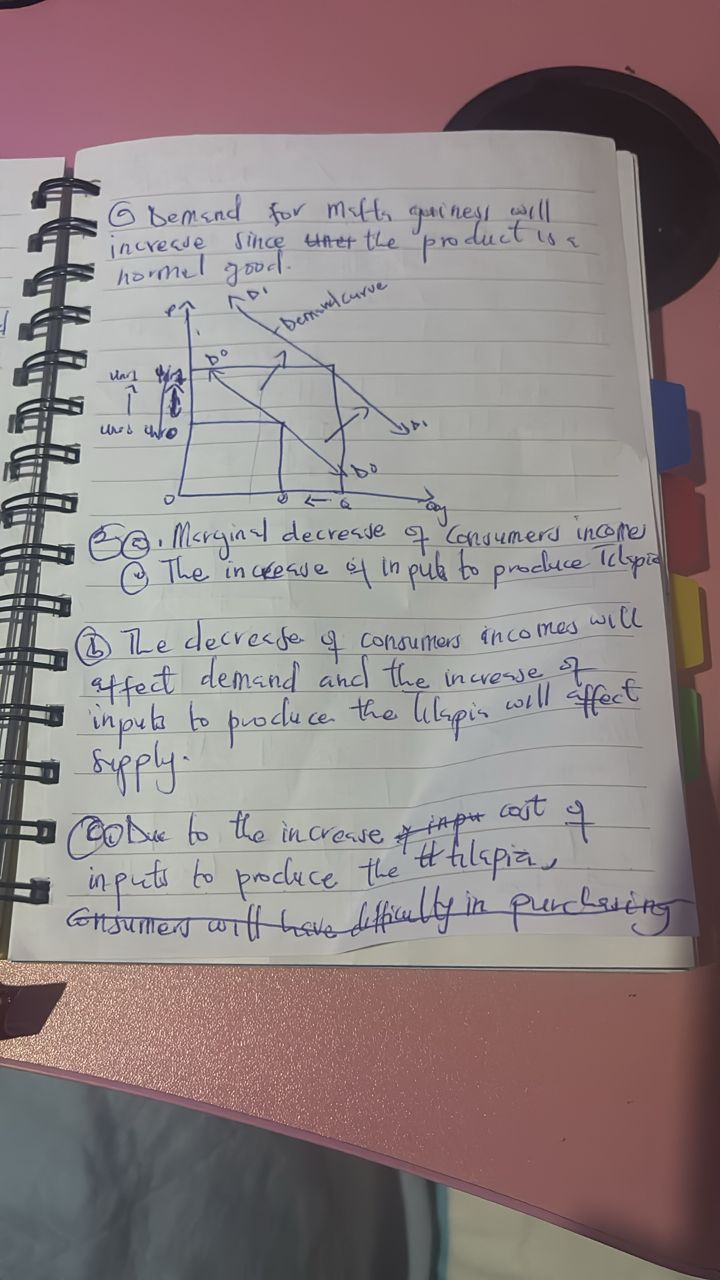 Demand for malta guiness will
increase since the product is a
normal good.
P
D¹
Demand curve
D⁰
D¹
D⁰
O
Q
Qty
2 a. Marginal decrease of consumers income
The increase of inputs to produce Tilapia
b The decrease of consumers incomes will
affect demand and the increase of
inputs to produce the tilapia will affect
supply.
Due to the increase of input cost of
inputs to produce the tt tilapia,
Consumers will have difficulty in purchasing